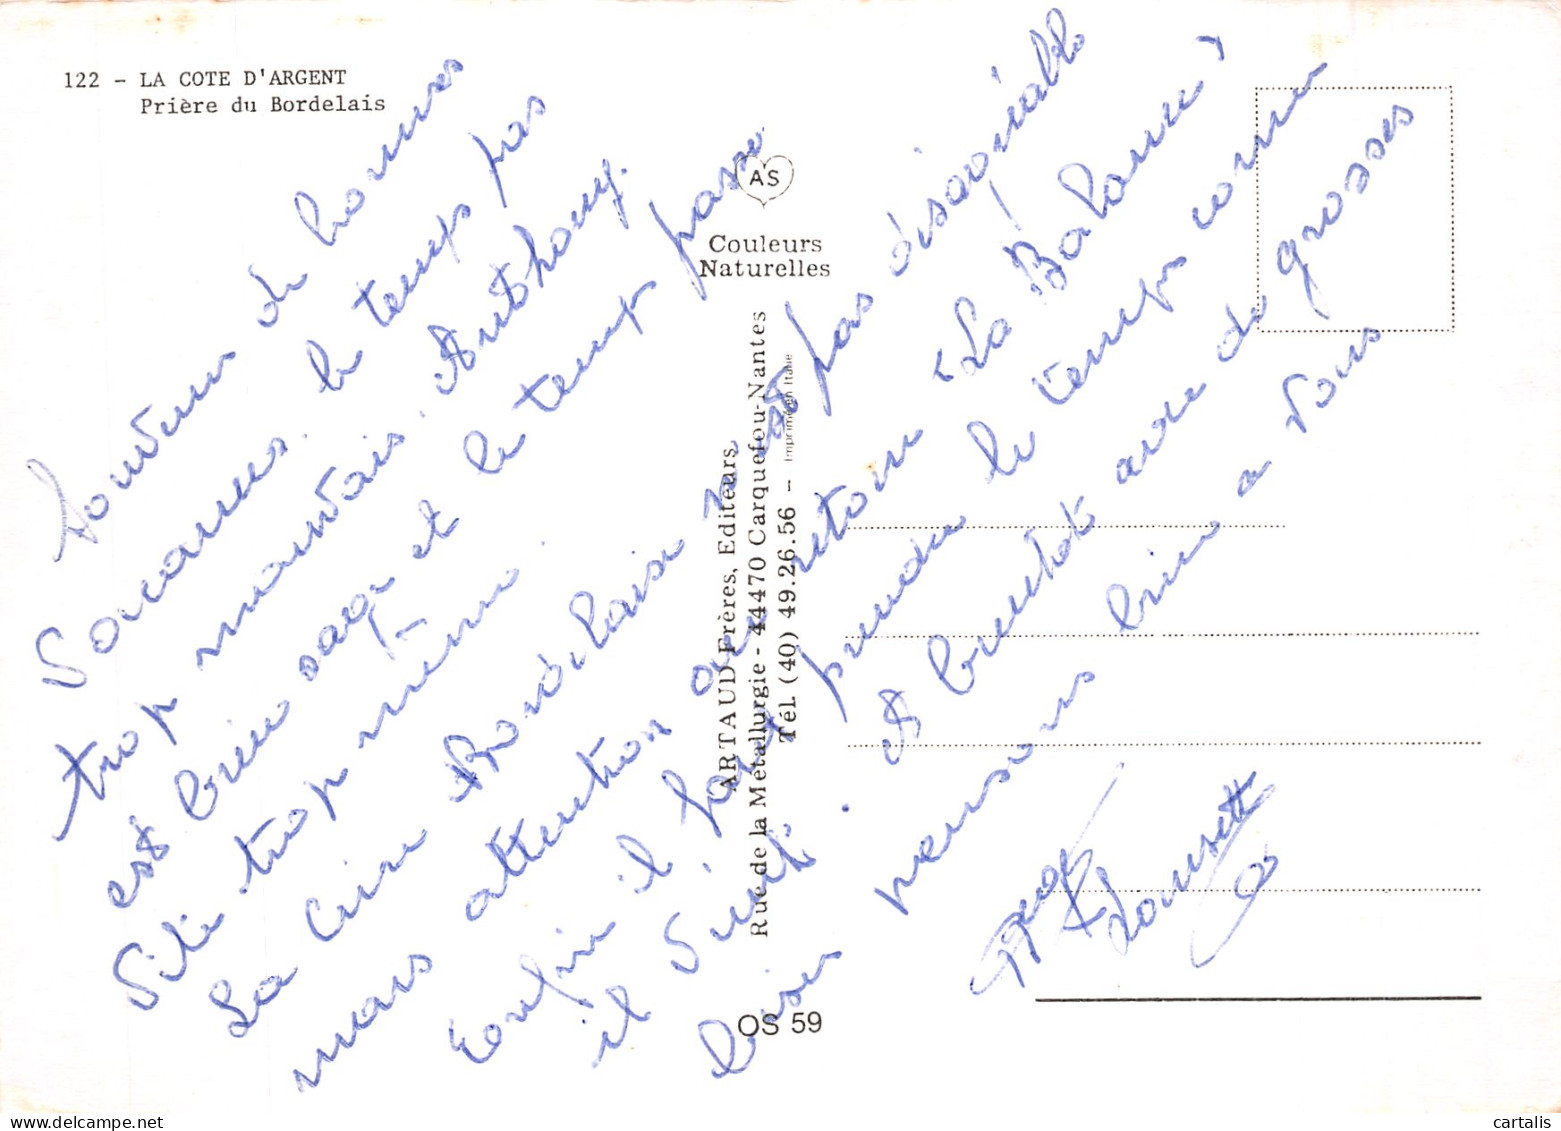 122 - LA COTE D'ARGENT
Prière du Bordelais
AS
Couleurs
Naturelles
ARTAUD Frères, Editeurs
Rue de la Métallurgie - 44470 Carquefou-Nantes
Tél. (40) 49.26.56 - Imprimé en Italie
OS 59
de bonnes
vacances. le temps pas
trop mauvais. Anthony
est bien sage et le temps passe
trop même.
La Bordelaise n'est pas désagréable
mais attention au retour "La Balance"
Enfin il faut prendre le temps comme
il suit. A bientôt avec de grosses
bises bien à vous
cartalis